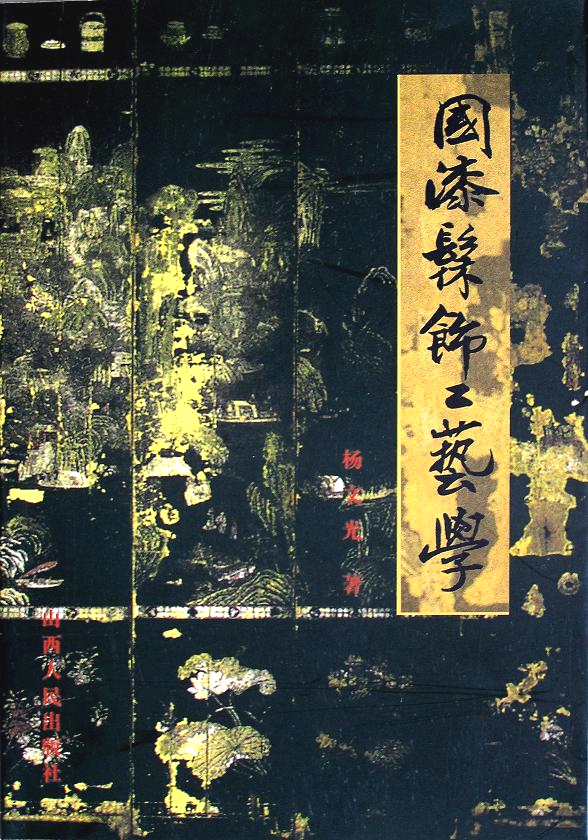 國漆髹飾工藝學
杨文光 著
山西人民出版社